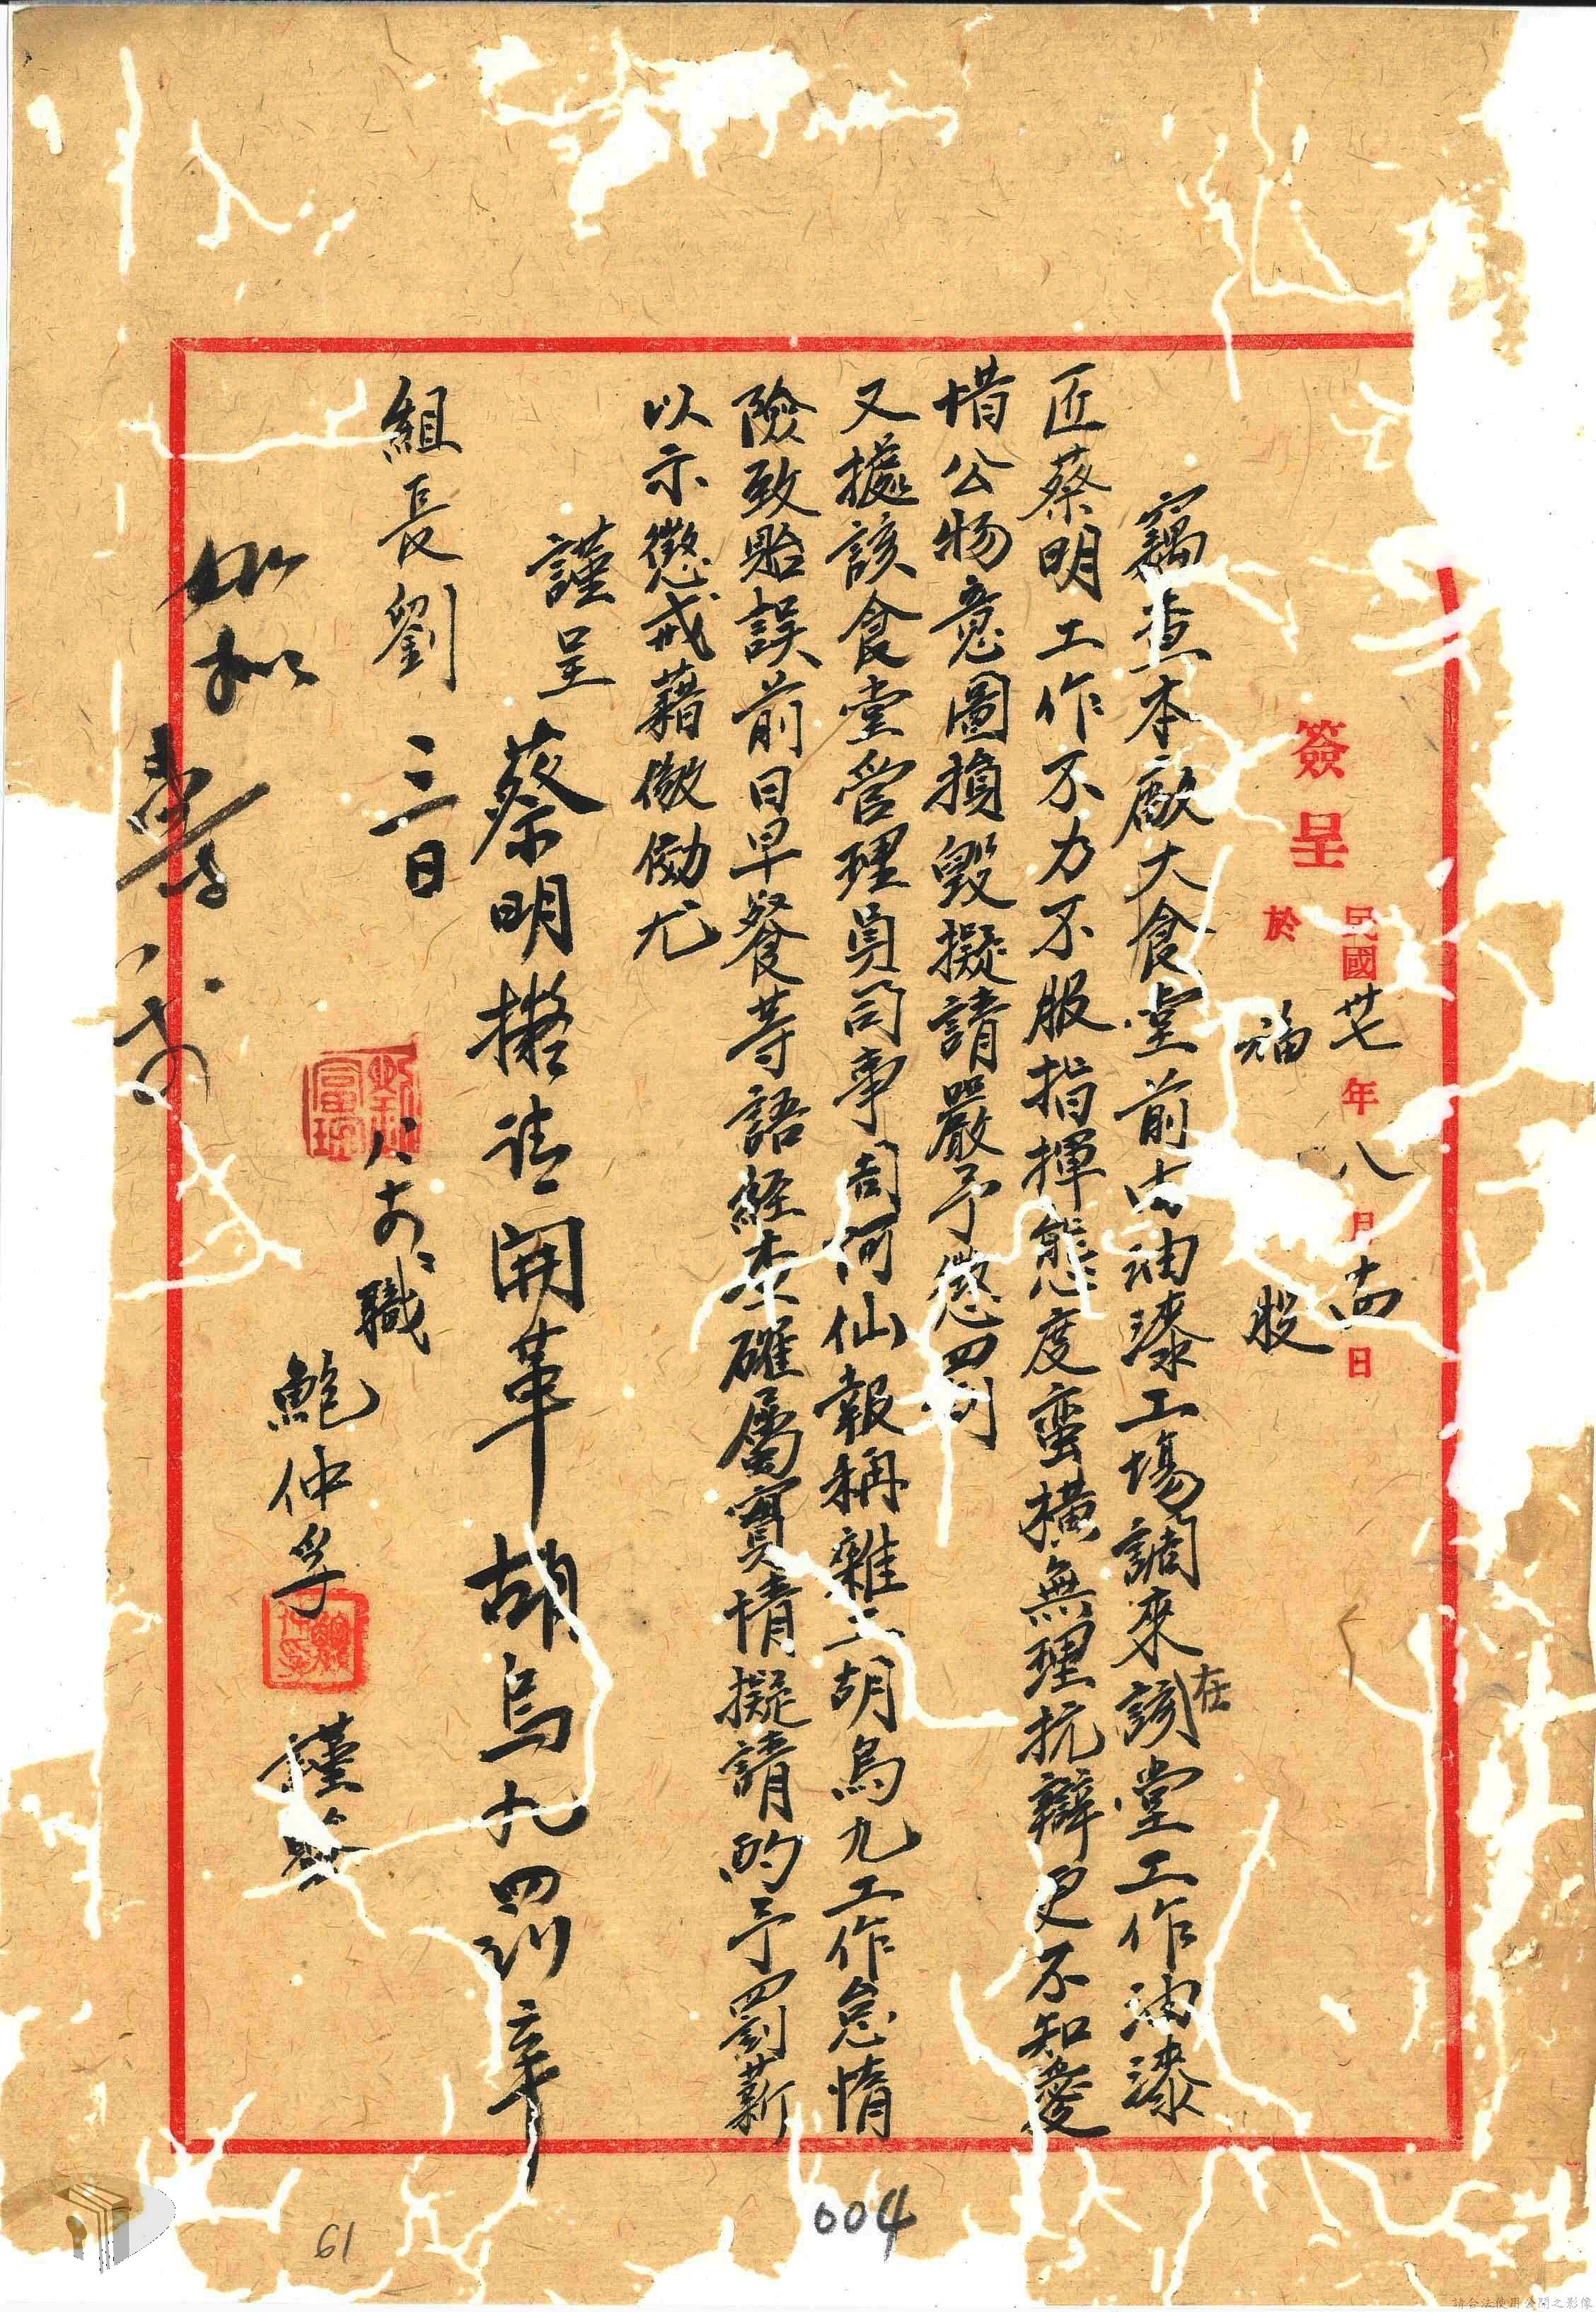 簽呈
民國卅七年八月十四日
於福 股
竊查本廠大食堂前由油漆工場調來該堂工作油漆
在
匠蔡明工作不力不服指揮態度蛮橫無理抗辯更不知愛
惜公物意圖損毀擬請嚴予懲罰
又據該食堂管理員司事周何仙報稱雜工胡烏九工作怠惰
險致貽誤前日早餐等語經查確屬實情擬請酌予罰薪
以示懲戒藉儆効尤
謹呈
組長劉
蔡明擬請開革胡烏九罰辛
三日
職鮑仲孚謹簽
如擬
004
61
請合法使用公開之影像